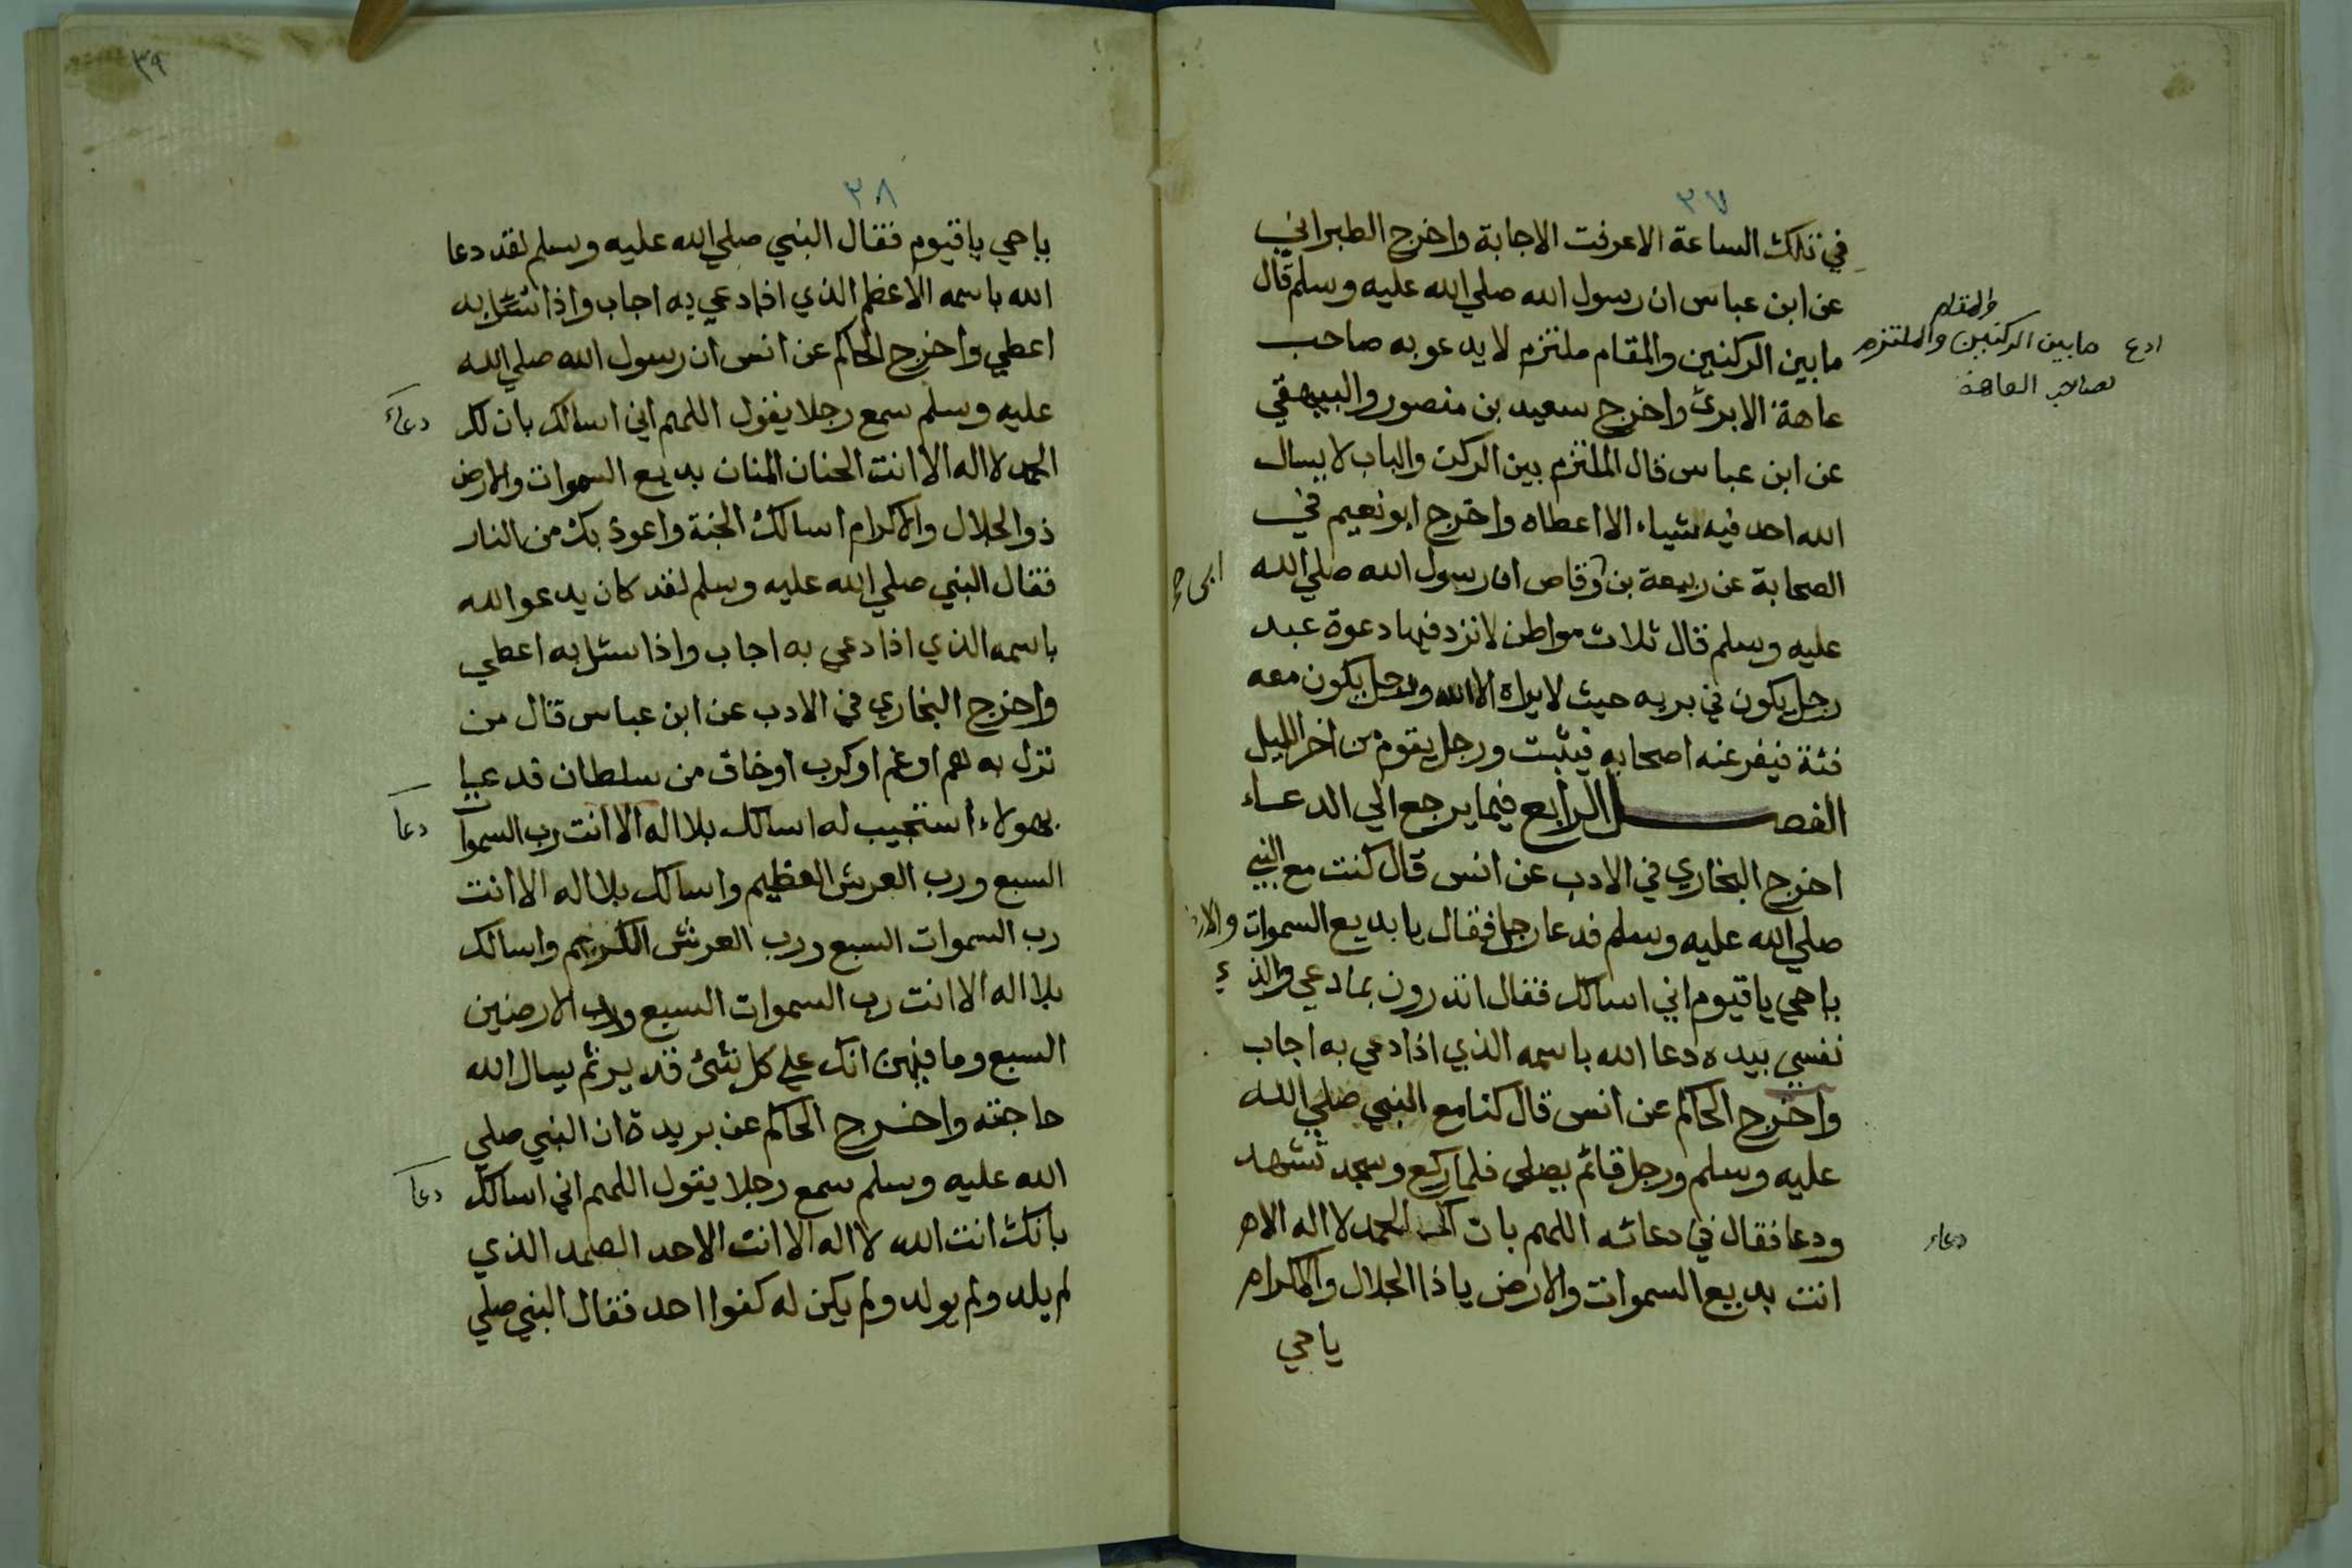 ٣٧
في تلك الساعة الا عرفت الاجابة واخرج الطبراني
عن ابن عباس ان رسول الله صلي الله عليه وسلم قال
ما بين الركنين والمقام ملتزم لا يدعو به صاحب
عاهة الا برئ واخرج سعيد بن منصور والبيهقي
عن ابن عباس قال الملتزم بين الركن والباب لا يسال
الله احد فيه شياء الا اعطاه واخرج ابو نعيم في
الصحابة عن ربيعة بن وقاص ان رسول الله صلي الله
عليه وسلم قال ثلاث مواطن لا تزد فيها دعوة عبد
رجل يكون في بريه حيث لا يراه الا الله ورجل يكون معه
فئة فيفر عنه اصحابه فيثبت ورجل يقوم من اخر الليل
الفصل الرابع فيما يرجع الي الدعاء
اخرج البخاري في الادب عن انس قال كنت مع النبي
صلي الله عليه وسلم فدعا رجل فقال يا بديع السموات والارض
ياحي ياقيوم اني اسالك فقال اتدرون بما دعي والذي
نفسي بيده دعا الله باسمه الذي اذا دعي به اجاب
واخرج الحاكم عن انس قال كنا مع النبي صلي الله
عليه وسلم ورجل قائم يصلي فلما ركع وسجد تشهد
ودعا فقال في دعائه اللهم بان لك الحمد لا اله الا
انت بديع السموات والارض ياذا الجلال والاكرام
ياحي
والمقام
ادع مابين الركنين والملتزم
لصاحب العاهة
دعاء
٣٩
٣٨
ياحي ياقيوم فقال النبي صلي الله عليه وسلم لقد دعا
الله باسمه الاعظم الذي اذا دعي به اجاب واذا سئل به
اعطي واخرج الحاكم عن انس ان رسول الله صلي الله
عليه وسلم سمع رجلا يقول اللهم اني اسالك بان لك
الحمد لا اله الا انت الحنان المنان بديع السموات والارض
ذو الجلال والاكرام اسالك الجنة واعوذ بك من النار
فقال النبي صلي الله عليه وسلم لقد كان يدعو الله
باسمه الذي اذا دعي به اجاب واذا سئل به اعطي
واخرج البخاري في الادب عن ابن عباس قال من
نزل به هم او غم او كرب او خاف من سلطان فدعيا
بهولاء استجيب له اسالك بلا اله الا انت رب السموات
السبع ورب العرش العظيم واسالك بلا اله الا انت
رب السموات السبع ورب العرش الكريم واسالك
بلا اله الا انت رب السموات السبع ورب الارضين
السبع وما فيهن انك علي كل شئ قدير ثم يسال الله
حاجته واخرج الحاكم عن بريدة ان النبي صلي
الله عليه وسلم سمع رجلا يقول اللهم اني اسالك
بانك انت الله لا اله الا انت الاحد الصمد الذي
لم يلد ولم يولد ولم يكن له كفوا احد فقال النبي صلي
دعاء
دعا
دعا